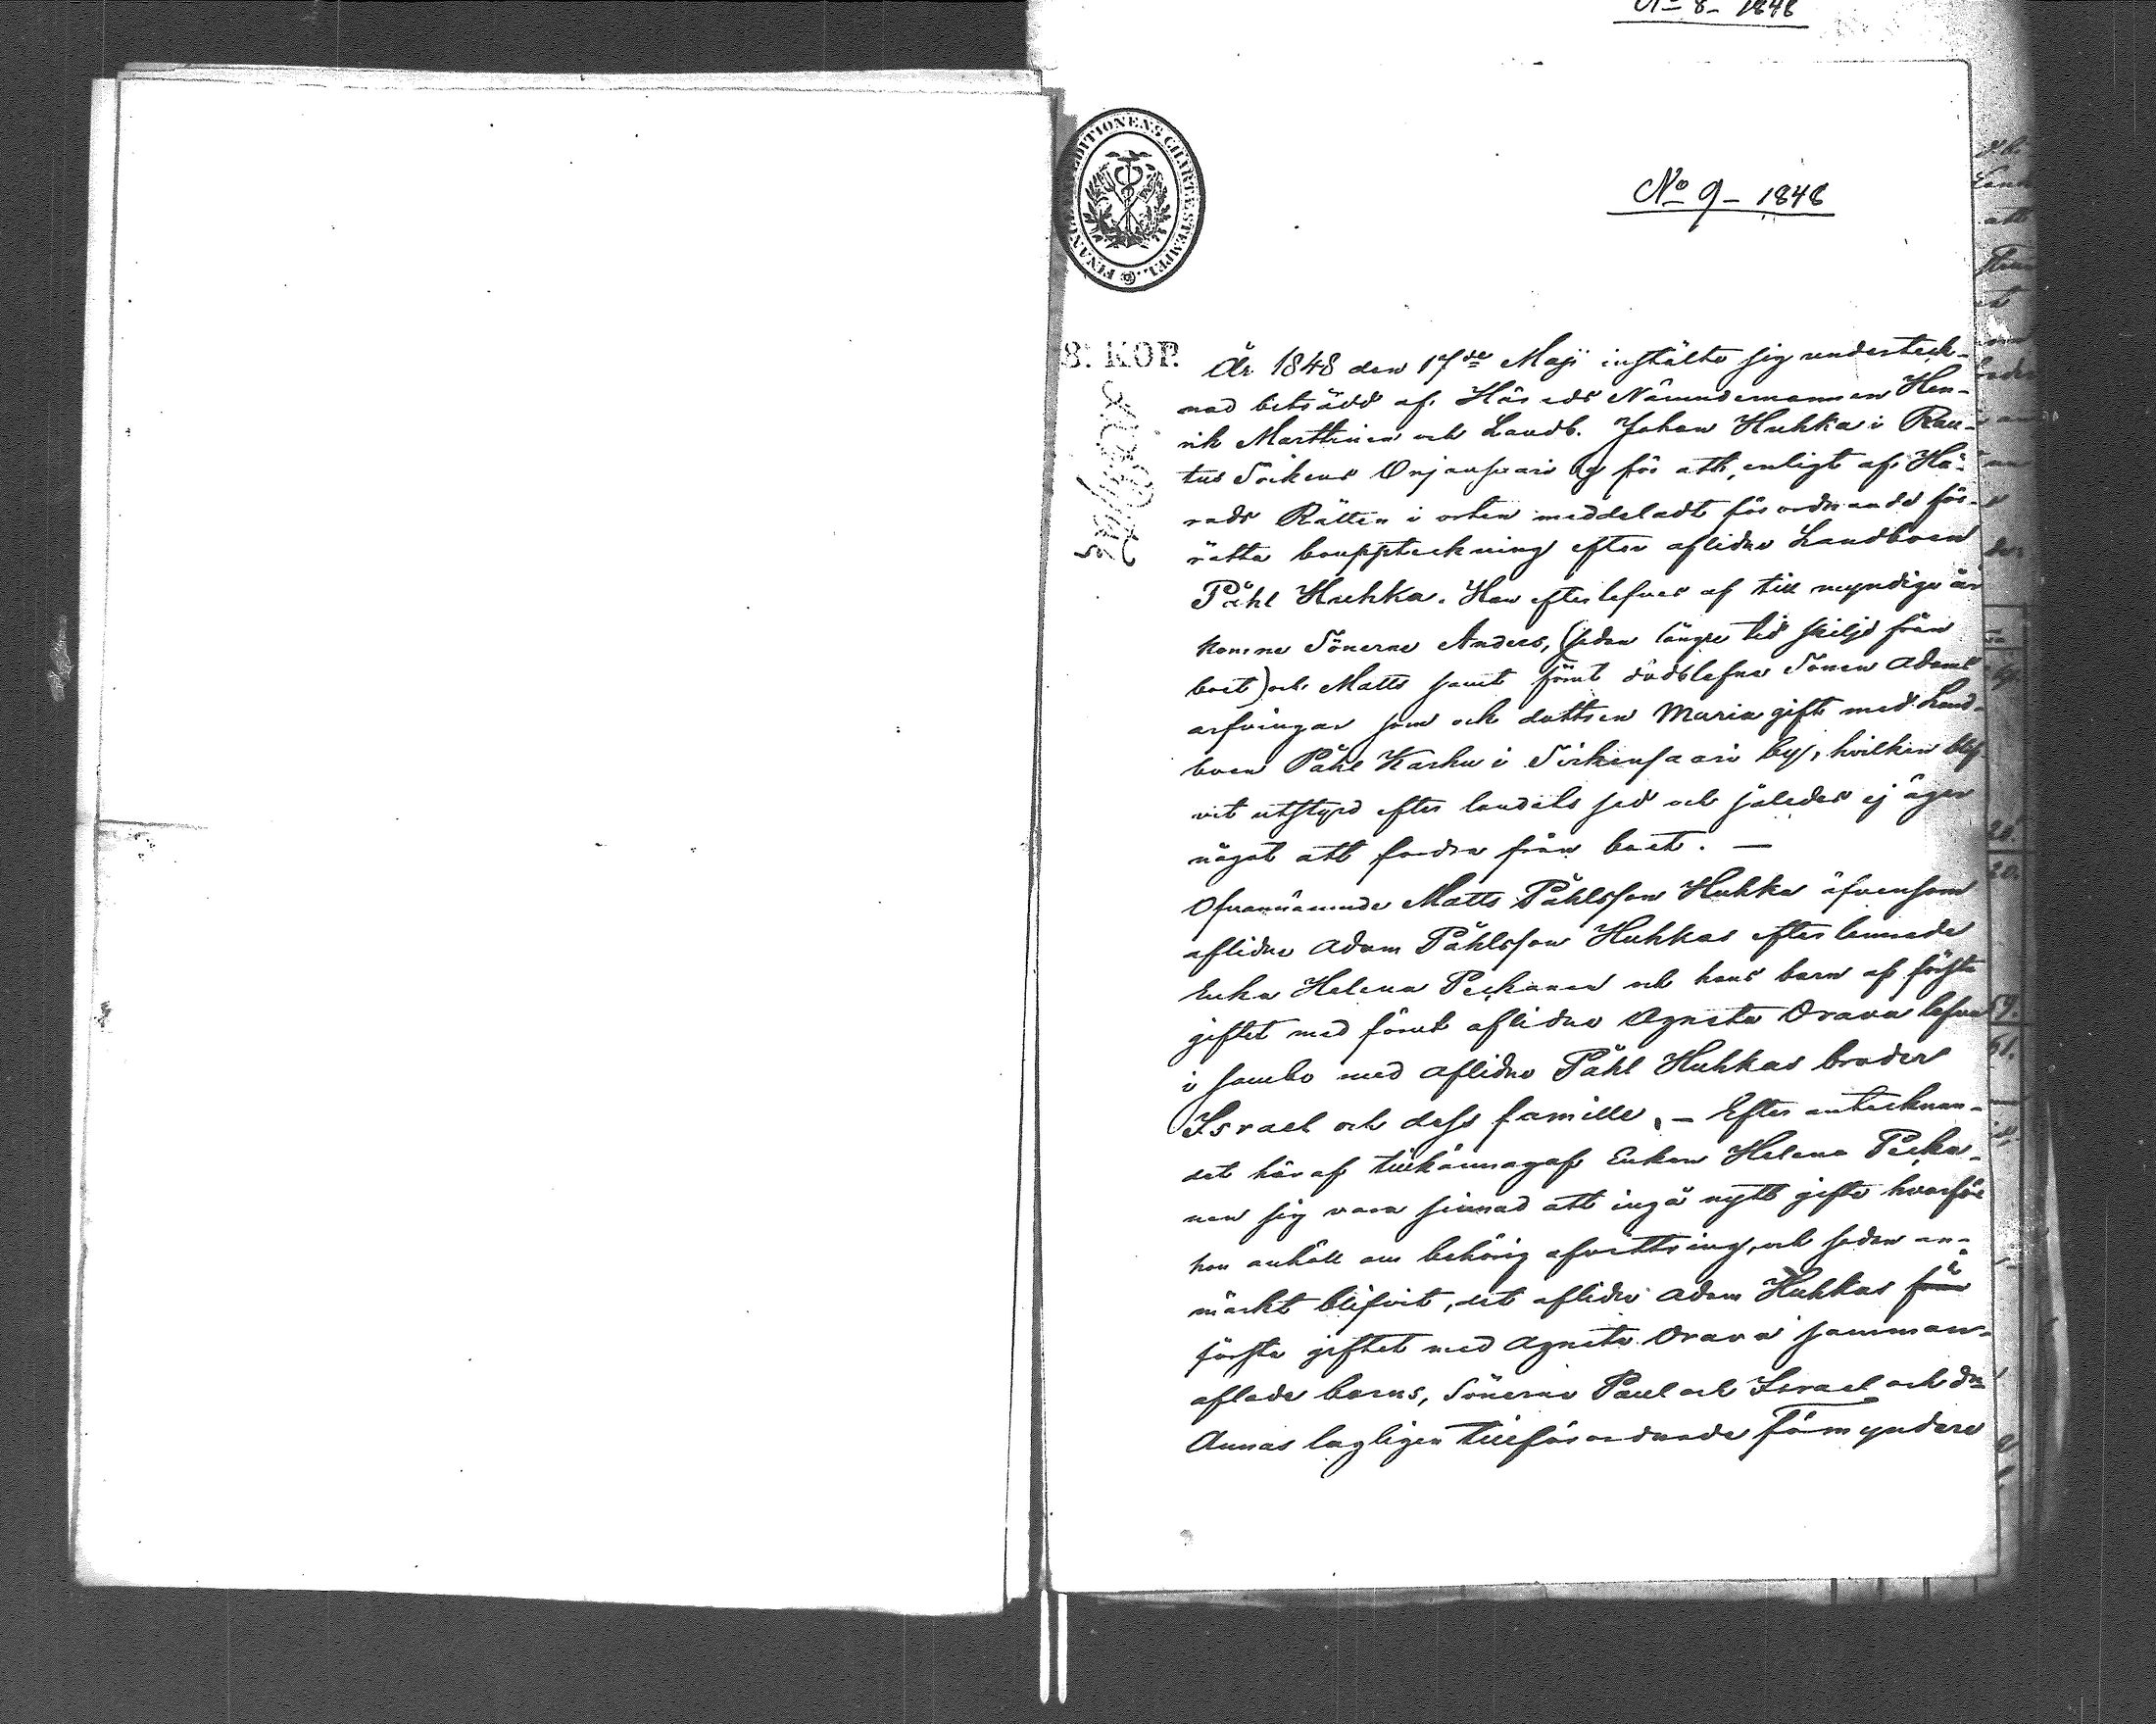 No 8 - 1848
FINANCE EXPEDITIONENS CHARTÆ STEMPEL.
No 9 - 1848
8. KOP.
År 1848 den 17de Maji instälte sig underteck-
nad biträdd af Härads Nämndemannen Hen-
rik Marttinen och Landb. Johan Huhka i Rau-
tus Sockens Orjansaari by för att, enligt af Hä-
rads Rätten i orten meddeladt förordnande för-
rätta bouppteckning efter aflidne Landboen
Påhl Huhka. Han efterlefves af till myndige år
komne Sönerne Anders, (sedan längre tid skiljd från
boet) och Matts samt förut dödblefne Sonen Adams
arfvingar som och dottren Maria gift med Land-
boen Påhl Karhu i Sirkensaari by, hvilken blif-
vit utstyrd efter landets sed och således ej äger
något att fordra från boet. —
Ofvannämnde Matts Påhlsson Huhka äfvensom
aflidne Adam Påhlsson Huhkas efterlemnade
Enka Helena Peckanen och hans barn af första
giftet med förut aflidne Agneta Orava lefva
i sambo med aflidne Påhl Huhkas broder
Israel och dess famille. — Efter anteckнan-
det häraf tillkännagaf Enkan Helena Pecka-
nen sig vara sinnad att ingå nytt gifte hvarföre
hon anhöll om behörig afvittring, och sedan an-
märkt blifvit, det aflidne Adam Huhkas från i
första giftet med Agneta Orava samman-
aflade barns, Sönerne Paul och Israel och dn
Annas lagligen tillförordnade förmyndare